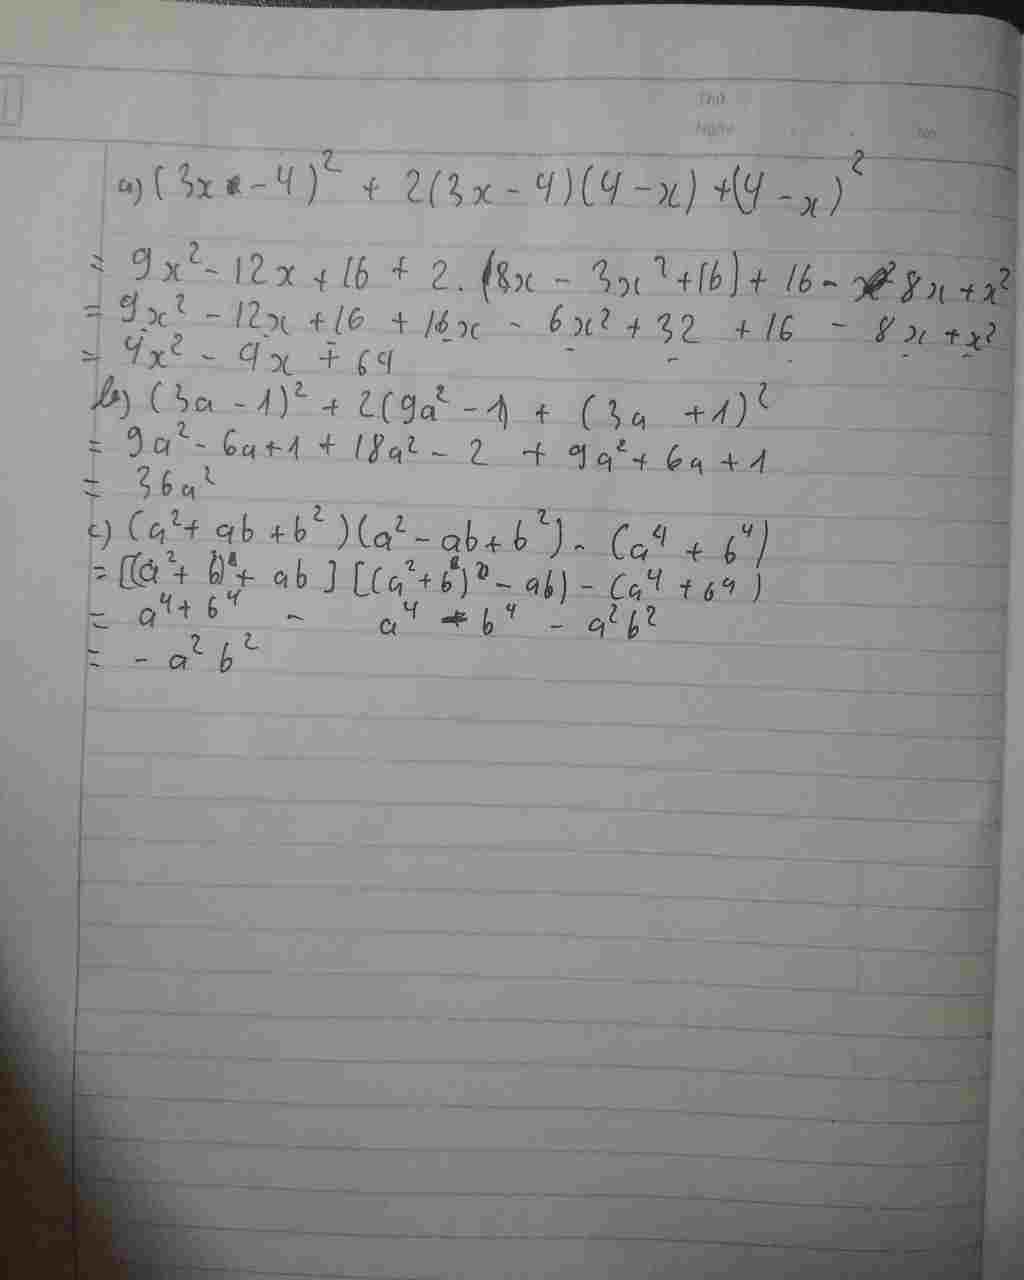 Thứ
Ngày
No.
a) (3x - 4)² + 2(3x - 4)(4 - x) + (4 - x)²
= 9x² - 12x + 16 + 2. (8x - 3x² + 16) + 16 - 8x + x²
= 9x² - 12x + 16 + 16x - 6x² + 32 + 16 - 8x + x²
= 4x² - 4x + 64
b) (3a - 1)² + 2(9a² - 1) + (3a + 1)²
= 9a² - 6a + 1 + 18a² - 2 + 9a² + 6a + 1
= 36a²
c) (a² + ab + b²)(a² - ab + b²) - (a⁴ + b⁴)
= [(a² + b²) + ab] [(a² + b²) - ab) - (a⁴ + b⁴)
= a⁴ + b⁴ - a⁴ - b⁴ - a²b²
= - a² b²